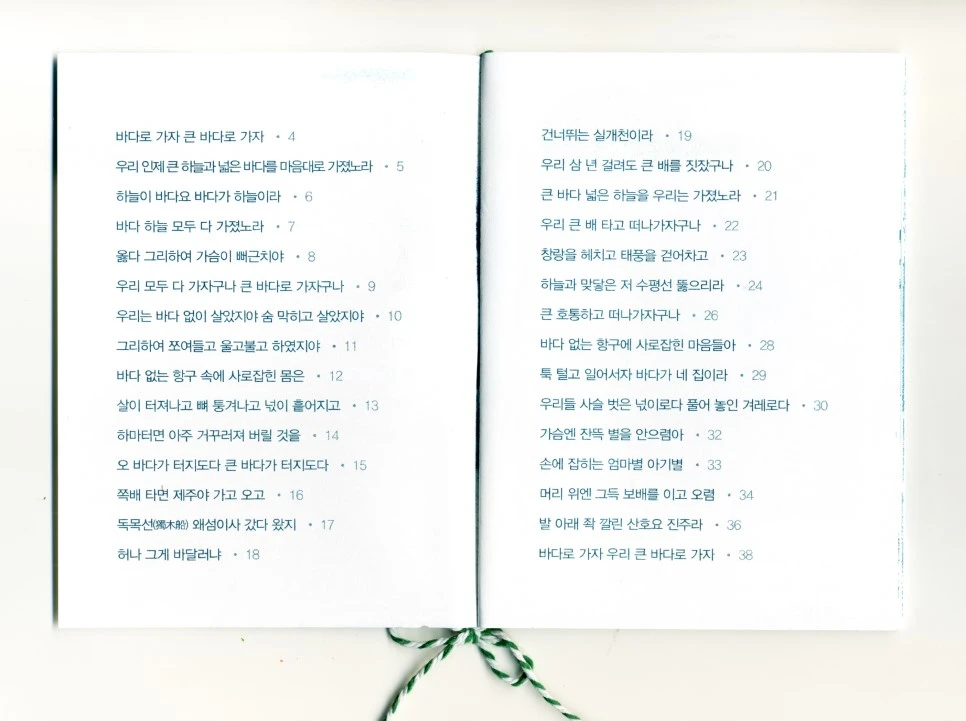 바다로 가자 큰 바다로 가자 • 4
우리 인제 큰 하늘과 넓은 바다를 마음대로 가졌노라 • 5
하늘이 바다요 바다가 하늘이라 • 6
바다 하늘 모두 다 가졌노라 • 7
옳다 그리하여 가슴이 뻐근치야 • 8
우리 모두 다 가자구나 큰 바다로 가자구나 • 9
우리는 바다 없이 살았지야 숨 막히고 살았지야 • 10
그리하여 쪼여들고 울고불고 하였지야 • 11
바다 없는 항구 속에 사로잡힌 몸은 • 12
살이 터져나고 뼈 퉁겨나고 넋이 흩어지고 • 13
하마터면 아주 거꾸러져 버릴 것을 • 14
오 바다가 터지도다 큰 바다가 터지도다 • 15
쪽배 타면 제주야 가고 오고 • 16
독목선(獨木船) 왜섬이사 갔다 왔지 • 17
허나 그게 바달러냐 • 18
건너뛰는 실개천이라 • 19
우리 삼 년 걸려도 큰 배를 짓잤구나 • 20
큰 바다 넓은 하늘을 우리는 가졌노라 • 21
우리 큰 배 타고 떠나가자구나 • 22
창랑을 헤치고 태풍을 걷어차고 • 23
하늘과 맞닿은 저 수평선 뚫으리라 • 24
큰 호통하고 떠나가자구나 • 26
바다 없는 항구에 사로잡힌 마음들아 • 28
툭 털고 일어서자 바다가 네 집이라 • 29
우리들 사슬 벗은 넋이로다 풀어 놓인 겨레로다 • 30
가슴엔 잔뜩 별을 안으렴아 • 32
손에 잡히는 엄마별 아기별 • 33
머리 위엔 그득 보배를 이고 오렴 • 34
발 아래 좍 깔린 산호요 진주라 • 36
바다로 가자 우리 큰 바다로 가자 • 38